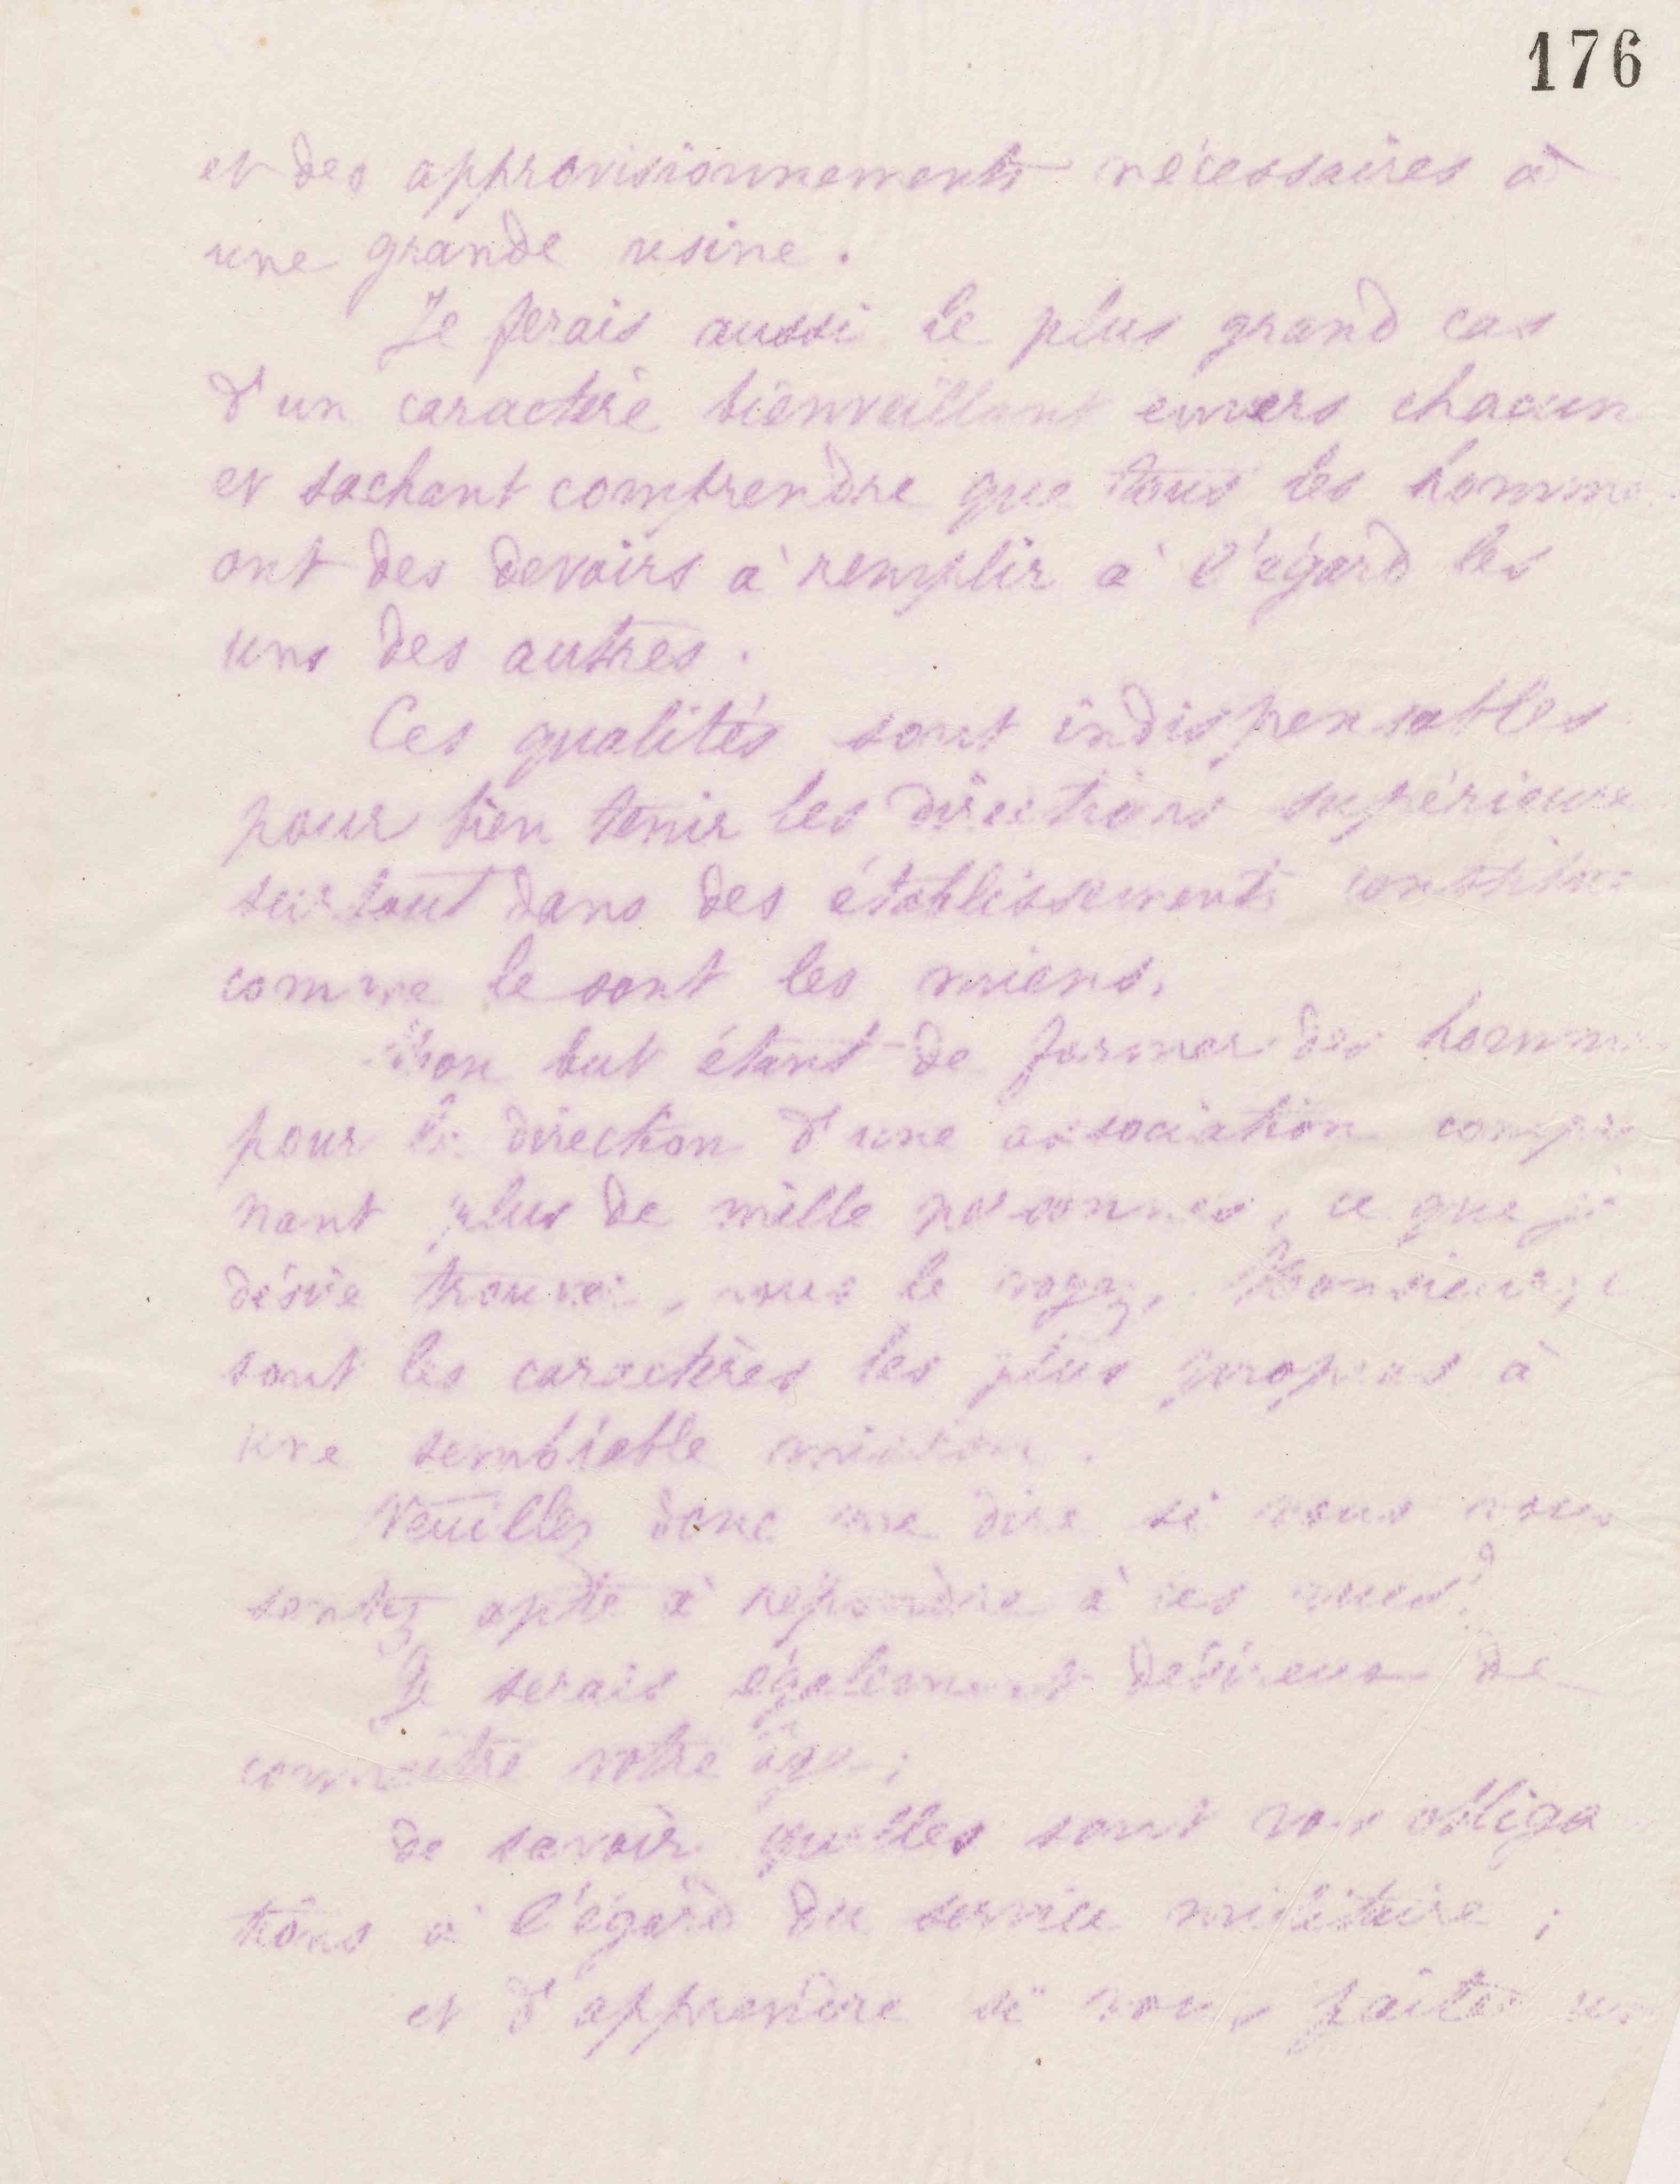 176
et des approvisionnements nécessaires à
une grande usine.
Je ferais aussi le plus grand cas
d'un caractère bienveillant envers chacun
et sachant comprendre que tous les homme
ont des devoirs à remplir à l'égard les
uns des autres.
Ces qualités sont indispensables
pour bien tenir les directions supérieure
surtout dans des établissements
comme le sont les miens.
Mon but étant de former des homm
pour la direction d'une association compre
nant plus de mille personnes, ce que je
désire trouver, vous le voyez, Monsieur, ce
sont les caractères les plus propres à
une semblable mission.
Veuillez donc me dire si vous vous
sentez apte à répondre à ces vues?
Je serais également désireux de
connaître votre âge;
de savoir quelles sont vos obliga
tions à l'égard du service militaire;
et d'apprendre si vous faites un